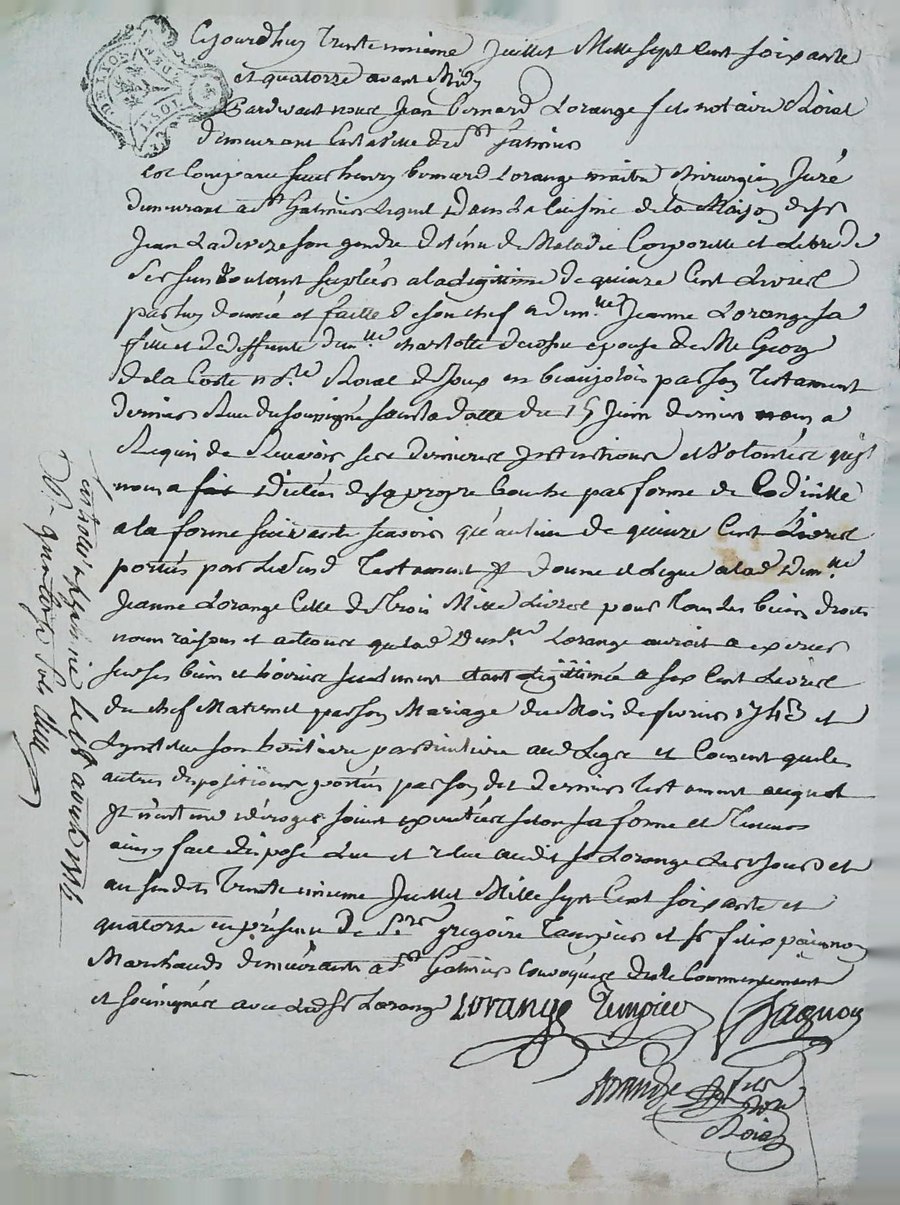 Cejourdhuy Trente unieme Juillet Mille Sept Cent Soixante
et quatorze avant Midy
Pardevant nous Jean bernard Lorange fils notaire Roial
demeurant en la ville de St Galmier
est Comparu Sieur henry bernard Lorange maitre Chirurgien Juré
demeurant a St Galmier Lequel dans La Cuisine de la Maison de sr
Jean son gendre detenu de Maladie Corporelle et Libre de
ses sens voulant supléer a la de quinze Cent Livres
par luy donnée et faitte de son chef a dem.lle Jeanne Lorange sa
fille et de deffunte dem.lle Charlotte epouse de Me George
de la Coste n.re Roial de Joux en beaujolois par son Testament
dernier Reçu du soussigné sous la datte du 15 Juin dernier nous a
Requis de Recevoir ses dernieres intentions et volontés qu'il
nous a dictées de sa propre bouche par forme de Codicille
a la forme suivante scavoir qu'au lieu de quinze Cent Livres
portés par Led Testament Jl donne et Legue a lad dem.lle
Jeanne Lorange Celle de Trois Mille Livres pour tous Les biens droits
noms raisons et actions que lad dem.lle Lorange auroit a exercer
sur ses biens et hoirie seulement a six Cent Livres
du chef Maternel par son Mariage du Mois de fevrier 1743 et
L'ynstitue son heritiere particuliere aud Legs et Consent que les
autres dispositions portés par son dit dernier testament auquel
Jl n'entend déroger soient executées selon sa forme et Teneur
ainsy fait disposé Lue et relue audit sr Lorange Les jours et
an susdits Trente unieme Juillet Mille sept Cent soixante et
quatorze en presence de S.rs gregoire Tempier et sr
Marchands demeurants a St Galmier Convoqués
et soussignés avec Led sr Lorange Lorange Tempier
Lorange fils
Roial
Controllé a St galmier Le 18 aoust 1774
R. quatorze sols